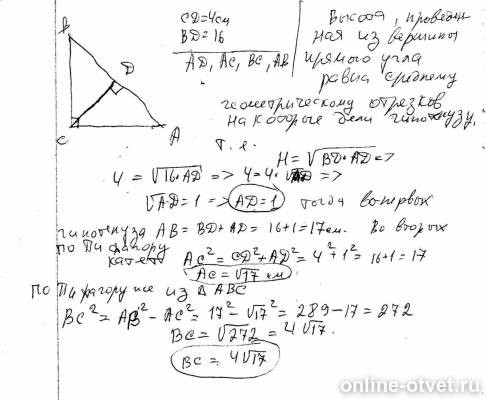 B
D
C
A
CD=4см
BD=16
AD, AC, BC, AB
Высота, проведен
ная из вершины
прямого угла
равна среднему
геометрическому отрезков
на которые дели гипотенузу,
т.е.
H=√BD·AD =>
4 = √16·AD => 4=4·√AD =>
√AD=1 => AD=1 тогда во первых
гипотенуза AB = BD+AD = 16+1=17см. Во вторых
по Пифагору
катет AC²=CD²+AD²=4²+1²=16+1=17
AC=√17 см
по Пифагору же из Δ ABC
BC²=AB²-AC²=17²-√17²=289-17=272
BC=√272=4√17.
BC=4√17
online-otvet.ru